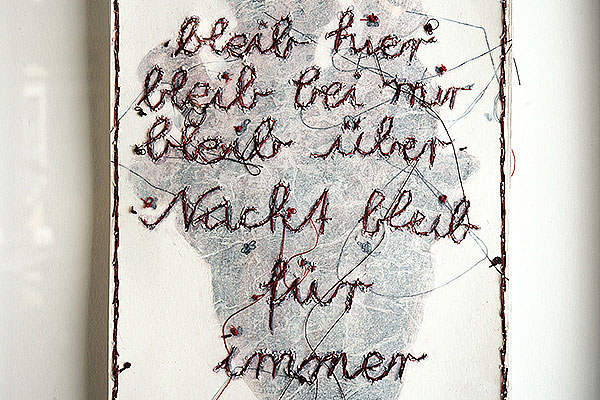 bleib hier
bleib bei mir
bleib über
Nacht bleib
für
immer